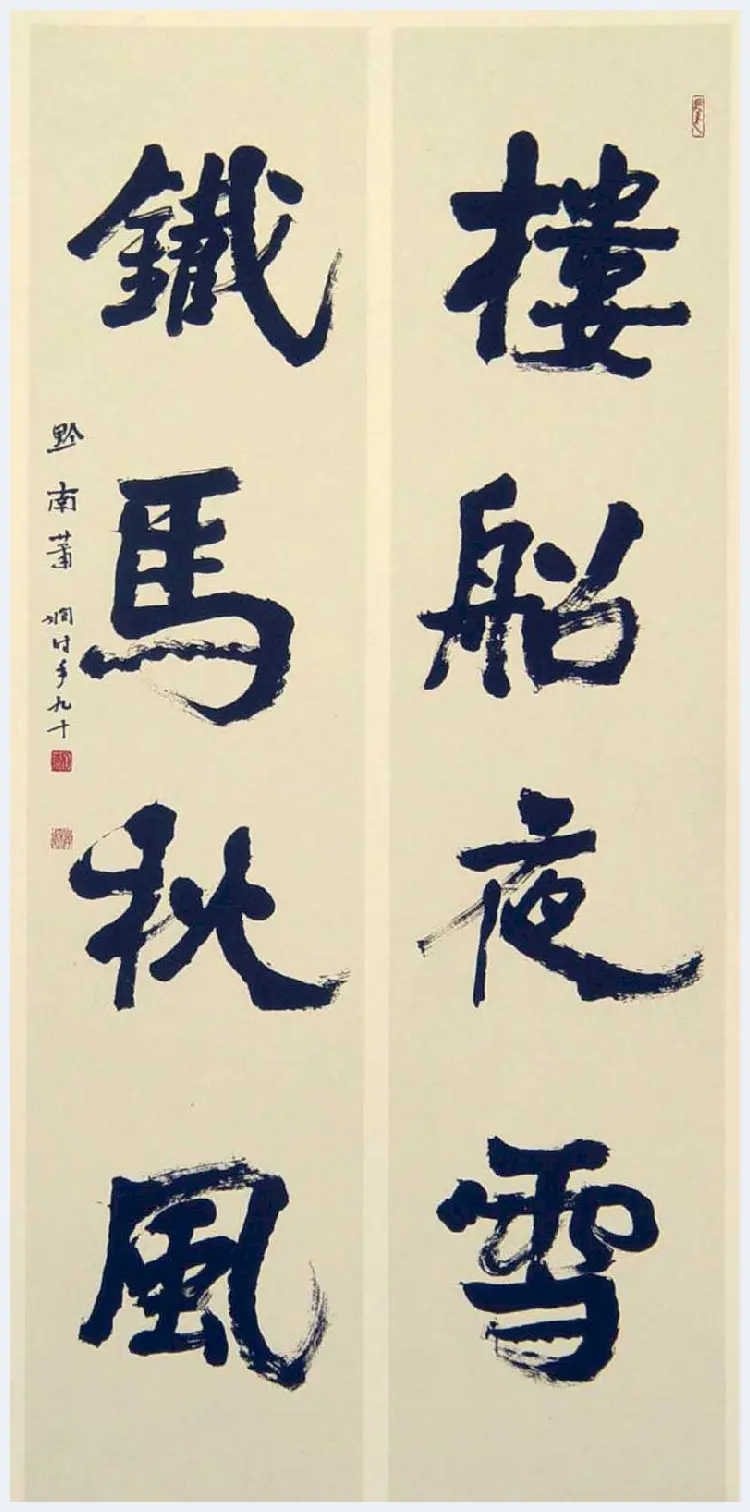 樓船夜雪
鐵馬秋風
黔南蕭嫻時年九十